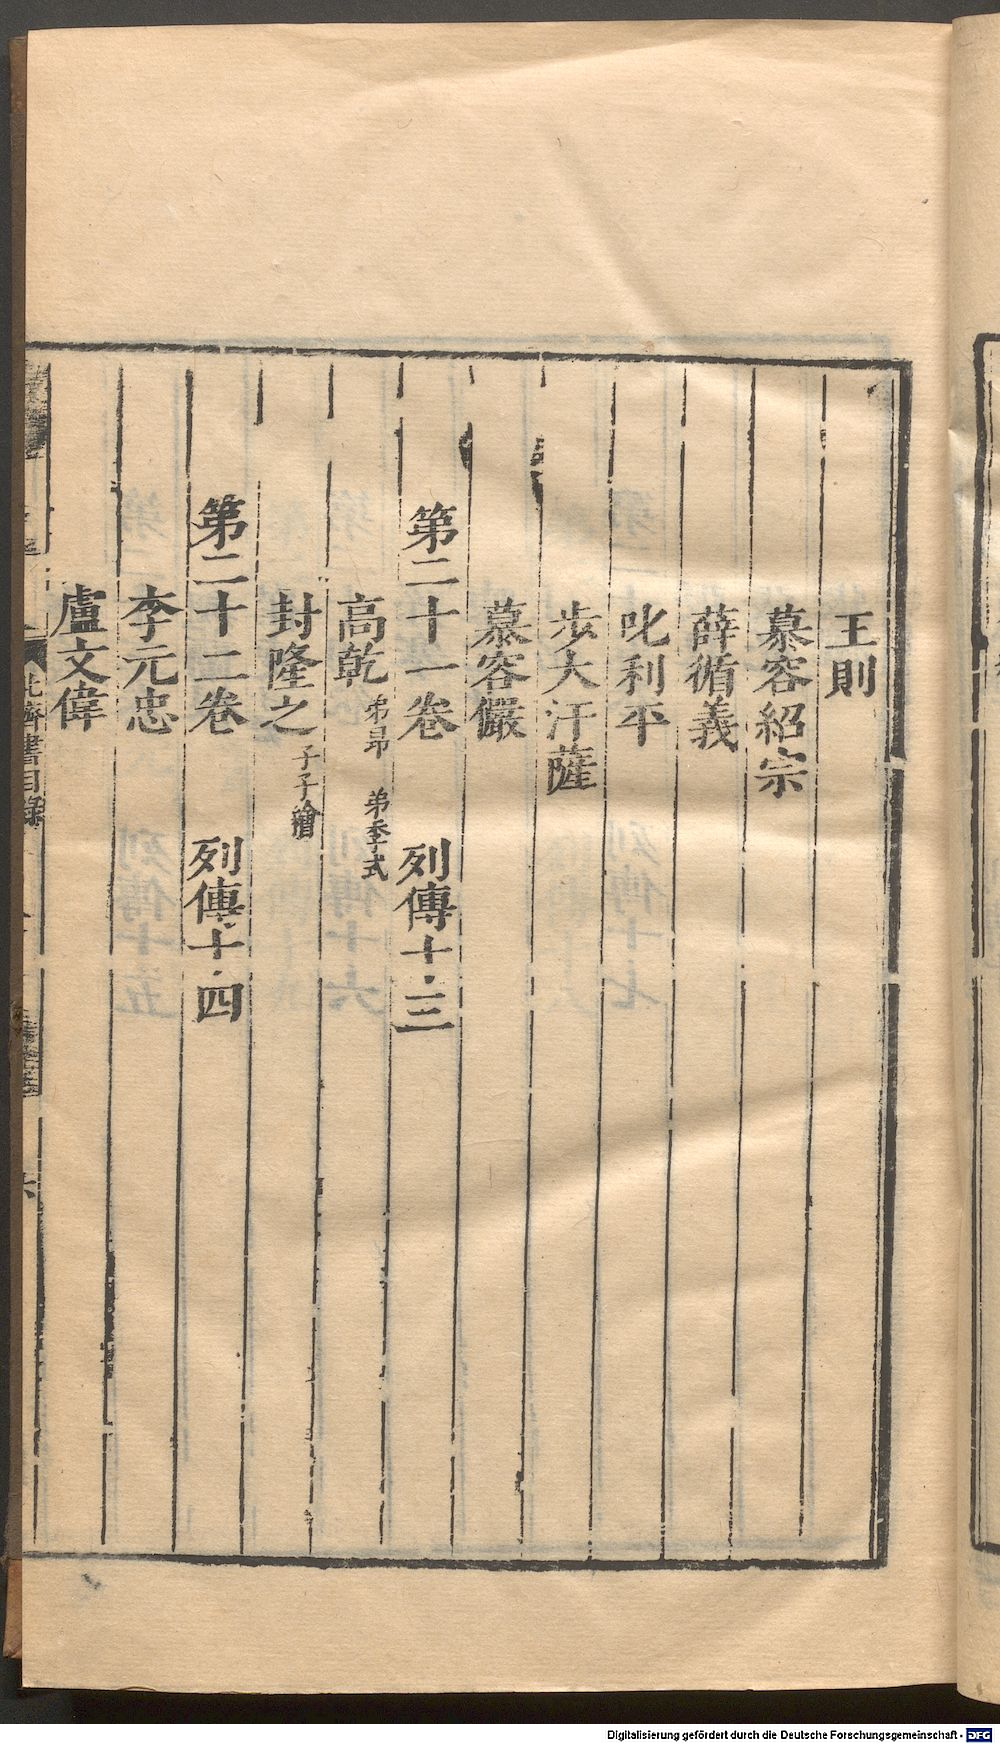 王則
慕容紹宗
薛循義
叱利平
步大汗薩
慕容儼
第二十一卷　列傳十三
高乾　弟昂　弟季式
封隆之　子子繪
第二十二卷　列傳十四
李元忠
盧文偉
北齊書目錄
六
Digitalisierung gefördert durch die Deutsche Forschungsgemeinschaft - DFG